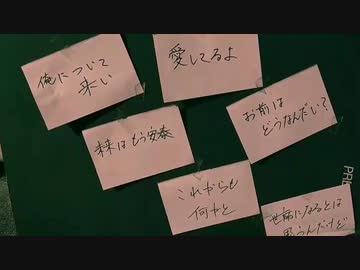 俺について
来い
愛してるよ
未来はもう安泰
お前は
どうなんだい?
これからも
何かと
世話になるとは
思うんだけど